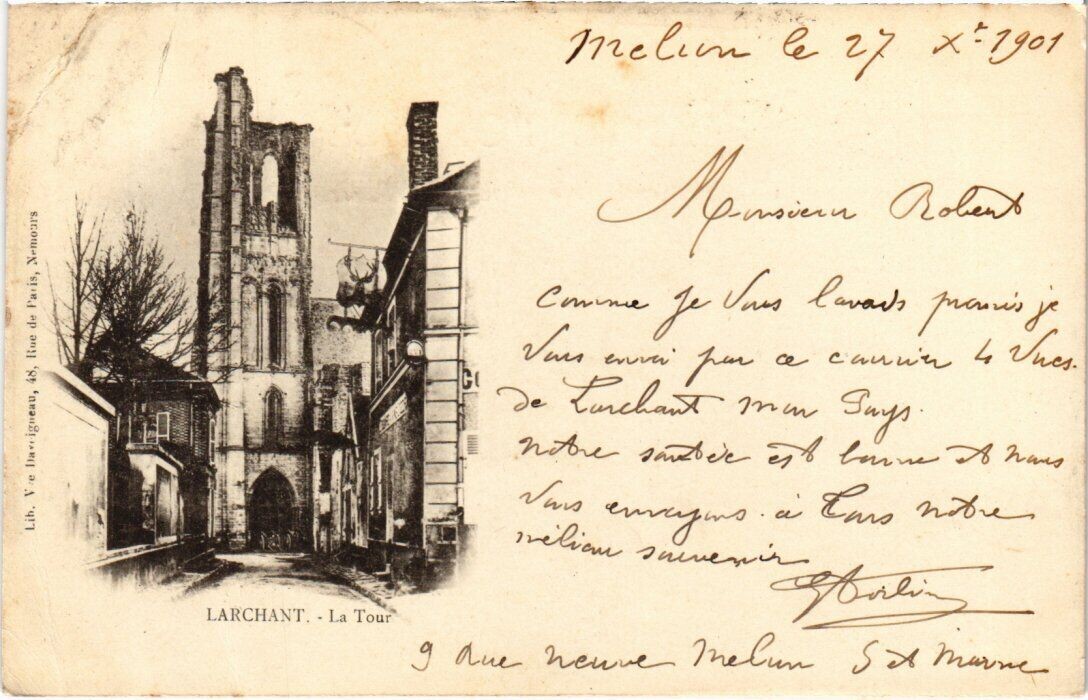 Melun le 27 Xr 1901
Monsieur Robert
Comme je vous lavais promis je
vous envoi par ce courrier 4 vues.
de Larchant mon Pays.
notre santée est bonne et nous
vous envoyons à tous notre
méliau souvenir
9 Rue neuve Melun S et Marne
LARCHANT. - La Tour
Lib. Vve Daveigneau, 48, Rue de Paris, Nemours